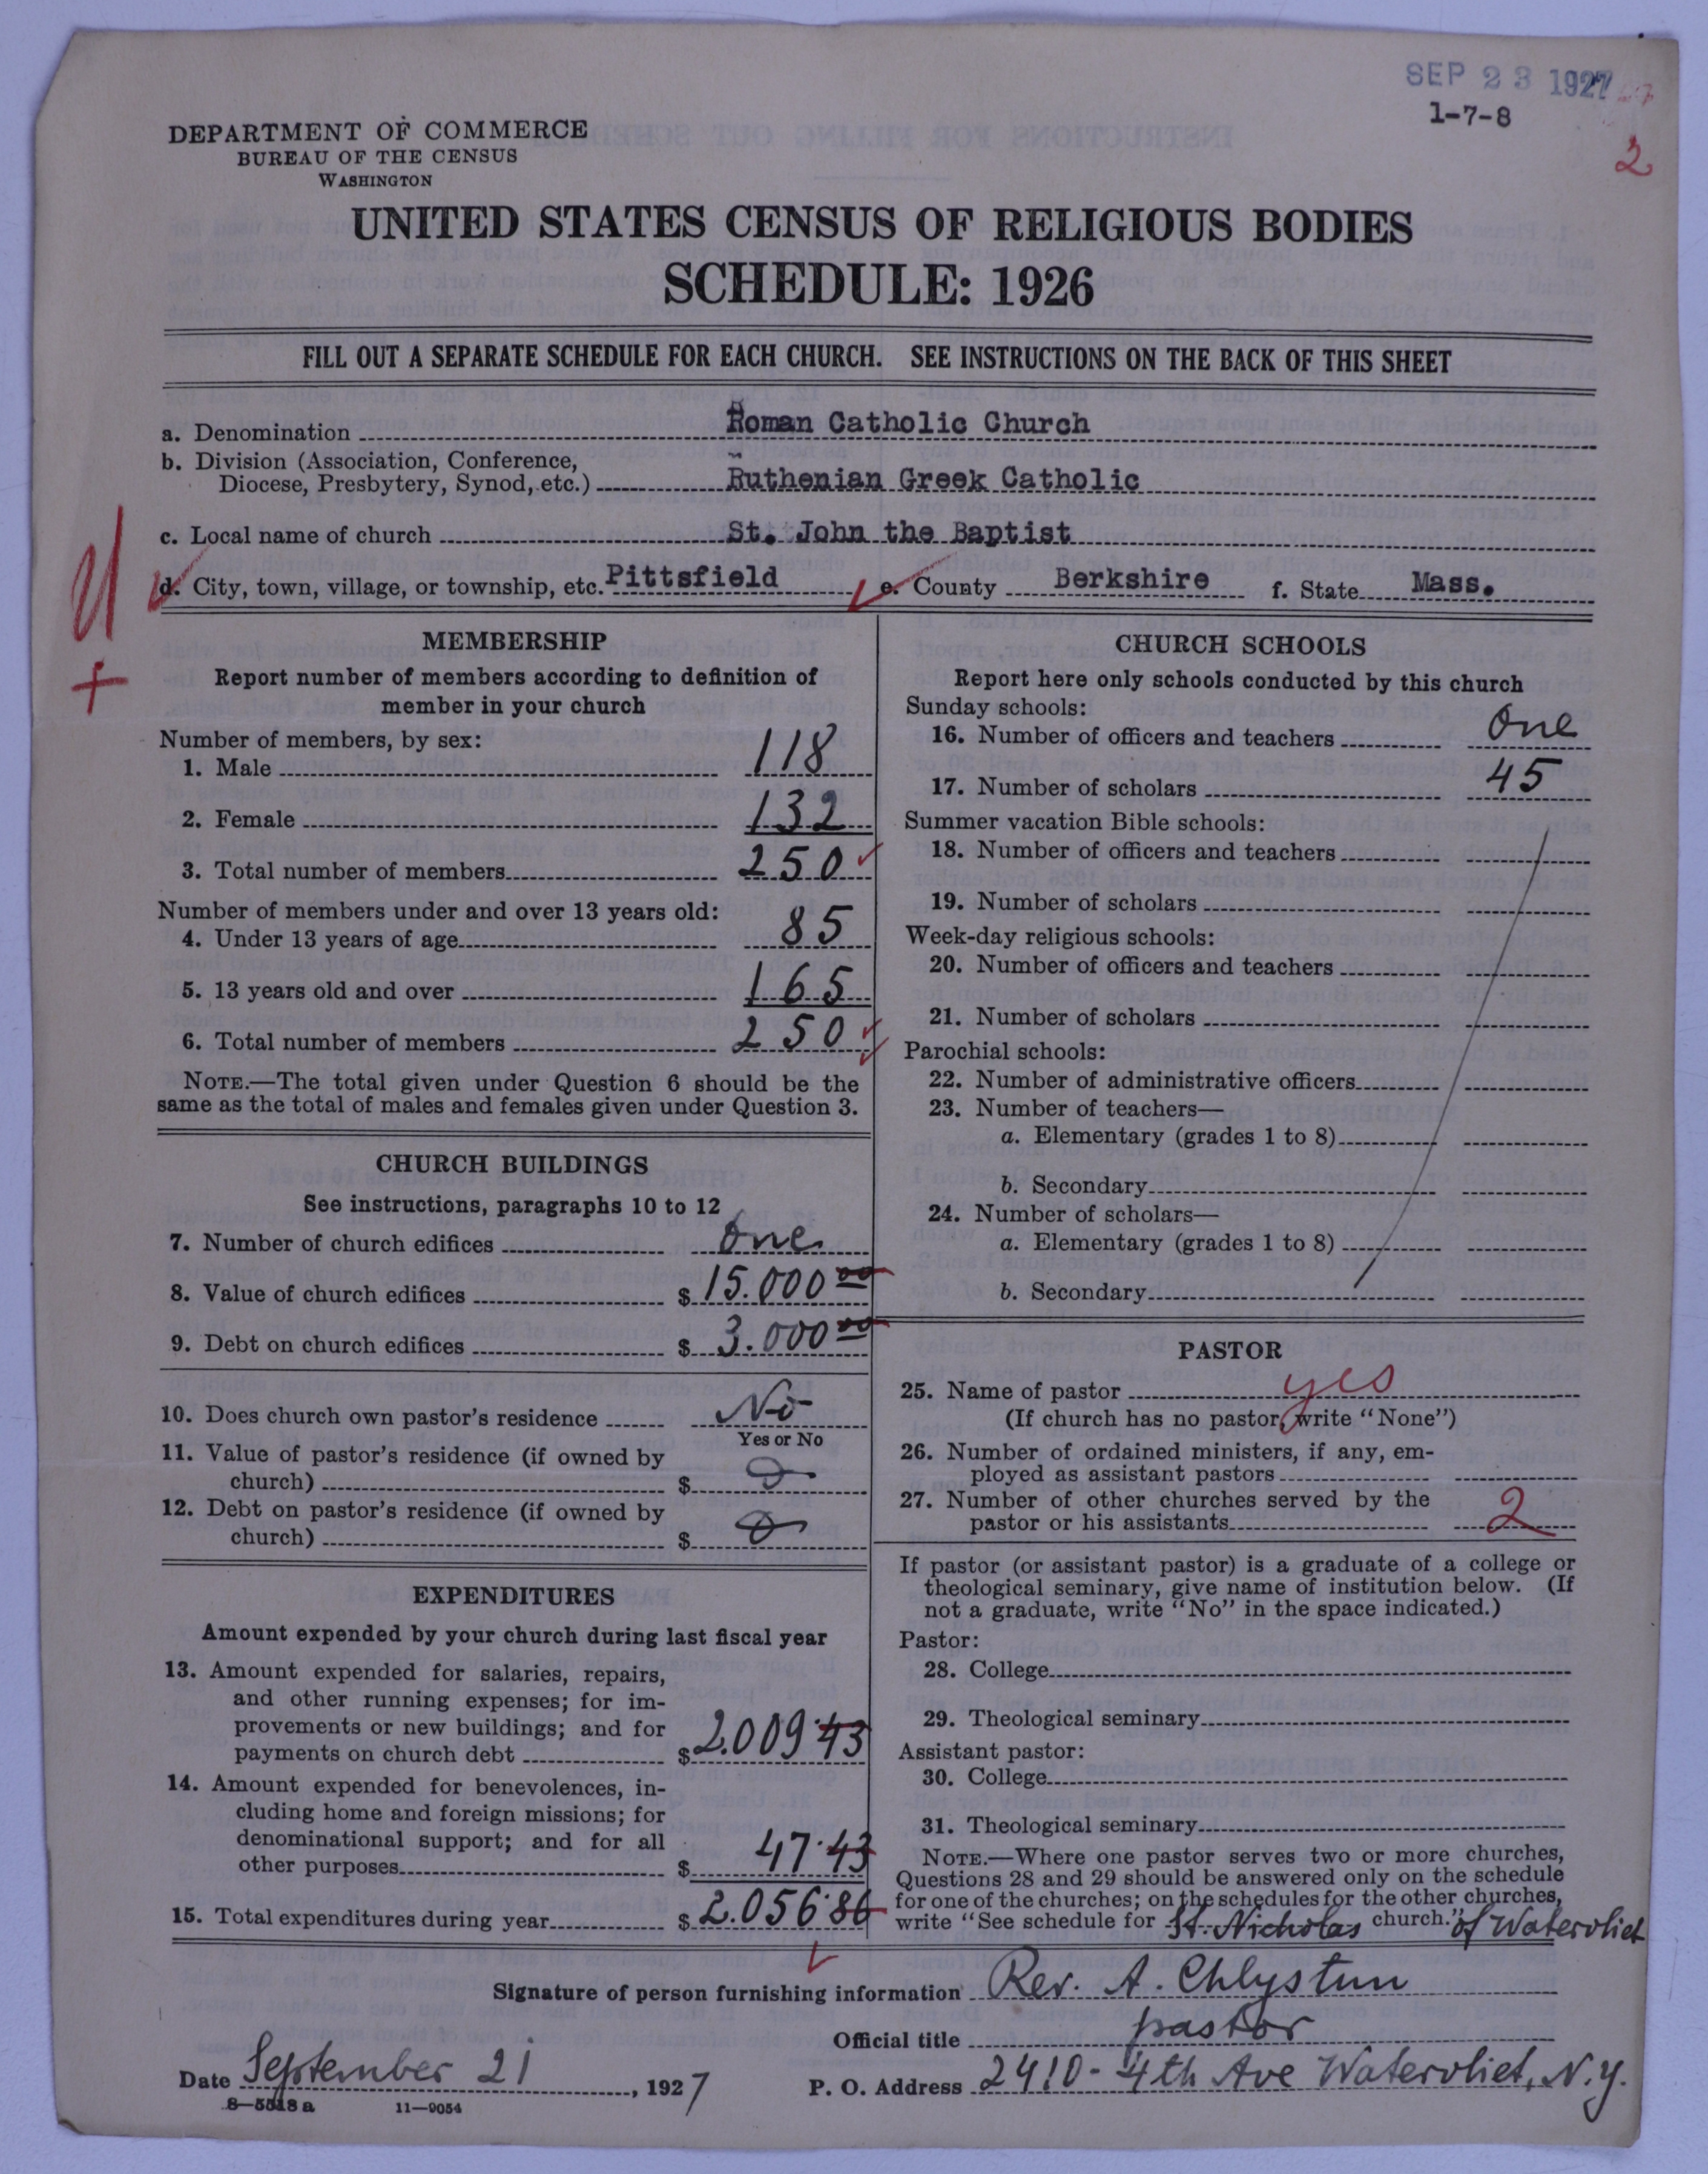 SEP 23 1927
1-7-8
2
DEPARTMENT OF COMMERCE
BUREAU OF THE CENSUS
WASHINGTON
UNITED STATES CENSUS OF RELIGIOUS BODIES
SCHEDULE: 1926
FILL OUT A SEPARATE SCHEDULE FOR EACH CHURCH. SEE INSTRUCTIONS ON THE BACK OF THIS SHEET
a. Denomination Roman Catholic Church
b. Division (Association, Conference,
Diocese, Presbytery, Synod, etc.) Ruthenian Greek Catholic
c. Local name of church St. John the Baptist
d. City, town, village, or township, etc. Pittsfield e. County Berkshire f. State Mass.
MEMBERSHIP
Report number of members according to definition of
member in your church
Number of members, by sex:
1. Male 118
2. Female 132
3. Total number of members 250
Number of members under and over 13 years old:
4. Under 13 years of age 85
5. 13 years old and over 165
6. Total number of members 250
NOTE.—The total given under Question 6 should be the
same as the total of males and females given under Question 3.
CHURCH BUILDINGS
See instructions, paragraphs 10 to 12
7. Number of church edifices One
8. Value of church edifices $ 15.000 00
9. Debt on church edifices $ 3.000 00
10. Does church own pastor's residence No
Yes or No
11. Value of pastor's residence (if owned by
church) $ 0
12. Debt on pastor's residence (if owned by
church) $ 0
EXPENDITURES
Amount expended by your church during last fiscal year
13. Amount expended for salaries, repairs,
and other running expenses; for im-
provements or new buildings; and for
payments on church debt $ 2.009.43
14. Amount expended for benevolences, in-
cluding home and foreign missions; for
denominational support; and for all
other purposes $ 47.43
15. Total expenditures during year $ 2.056.86
CHURCH SCHOOLS
Report here only schools conducted by this church
Sunday schools:
16. Number of officers and teachers One
17. Number of scholars 45
Summer vacation Bible schools:
18. Number of officers and teachers
19. Number of scholars
Week-day religious schools:
20. Number of officers and teachers
21. Number of scholars
Parochial schools:
22. Number of administrative officers
23. Number of teachers—
a. Elementary (grades 1 to 8)
b. Secondary
24. Number of scholars—
a. Elementary (grades 1 to 8)
b. Secondary
PASTOR
25. Name of pastor yes
(If church has no pastor, write "None")
26. Number of ordained ministers, if any, em-
ployed as assistant pastors
27. Number of other churches served by the
pastor or his assistants 2
If pastor (or assistant pastor) is a graduate of a college or
theological seminary, give name of institution below. (If
not a graduate, write "No" in the space indicated.)
Pastor:
28. College
29. Theological seminary
Assistant pastor:
30. College
31. Theological seminary
NOTE.—Where one pastor serves two or more churches,
Questions 28 and 29 should be answered only on the schedule
for one of the churches; on the schedules for the other churches,
write "See schedule for St. Nicholas church." of Watervliet
Signature of person furnishing information Rev. A. Chlystun
Official title pastor
Date September 21, 1927 P. O. Address 2410-4th Ave Watervliet, N.Y.
8—5518 a 11—9054